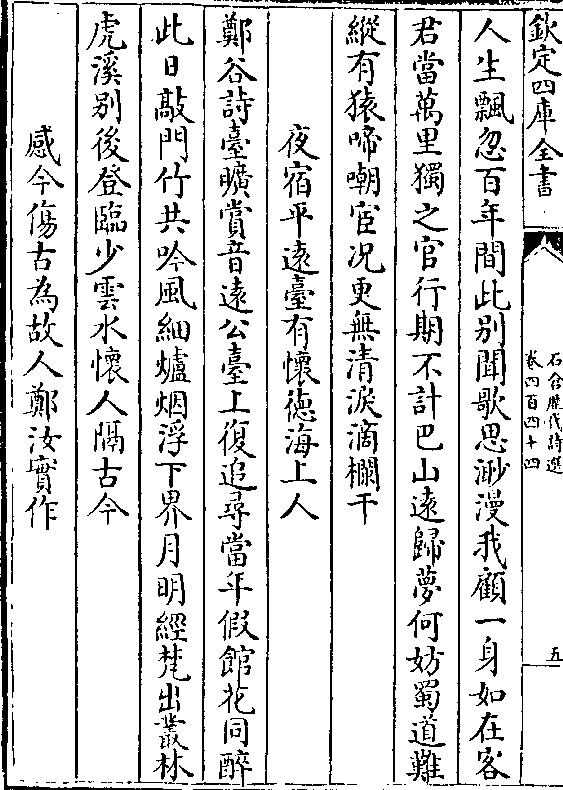 欽定四庫全書
石倉歷代詩選
卷四百四十四
五
人生飄忽百年間此别聞歌思渺漫我顧一身如在客
君當萬里獨之官行期不計巴山遠歸夢何妨蜀道難
縱有猿啼嘲宦况更無清淚滴欄干
夜宿平遠臺有懷德海上人
鄭谷詩臺曠賞音遠公臺上復追尋當年假館花同醉
此日敲門竹共吟風細爐烟浮下界月明經梵出叢林
虎溪别後登臨少雲水懷人隔古今
感今傷古為故人鄭汝實作